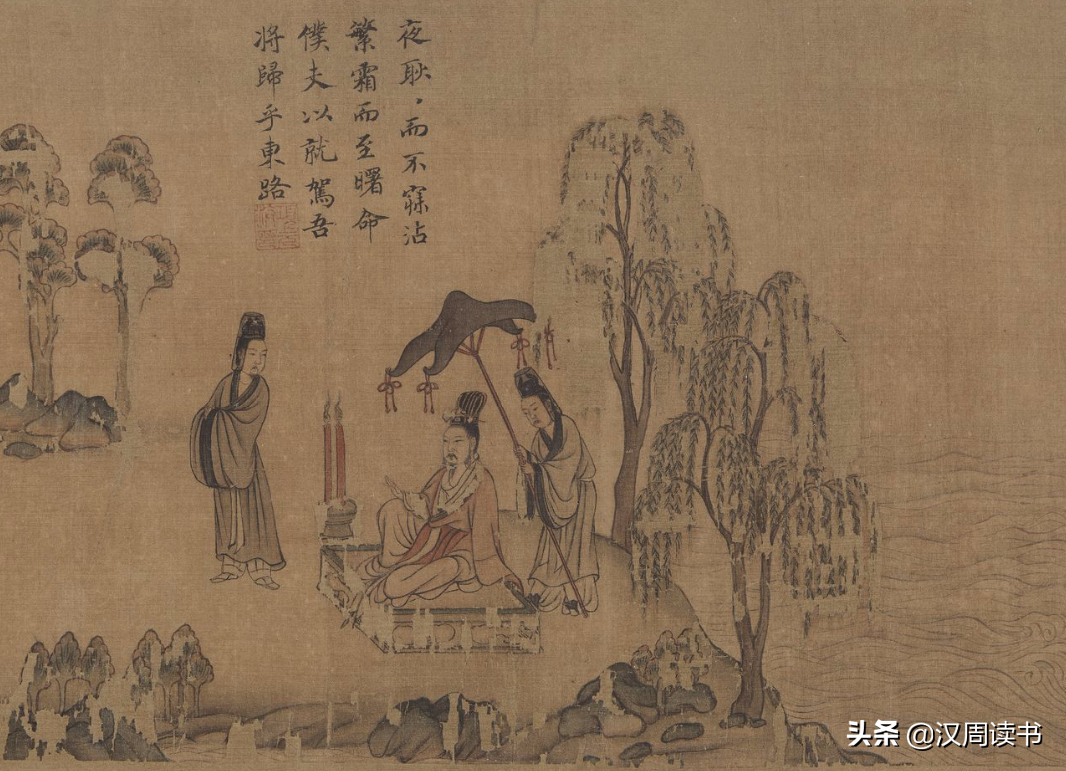 夜耿,而不寐沾
繁霜而至曙命
僕夫以就駕吾
將歸乎東路
头条 @汉周读书